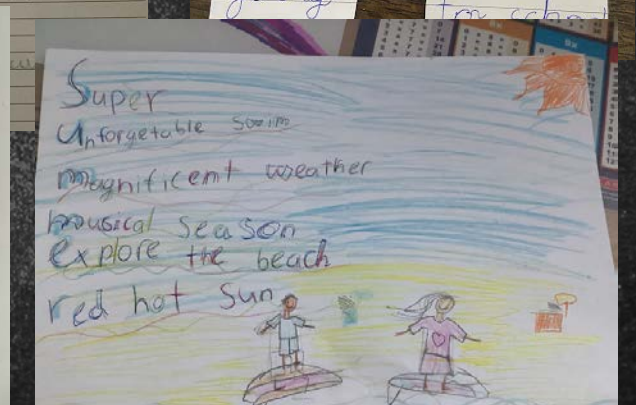 Super
Unforgetable swim
magnificent weather
musical season
explore the beach
red hot sun